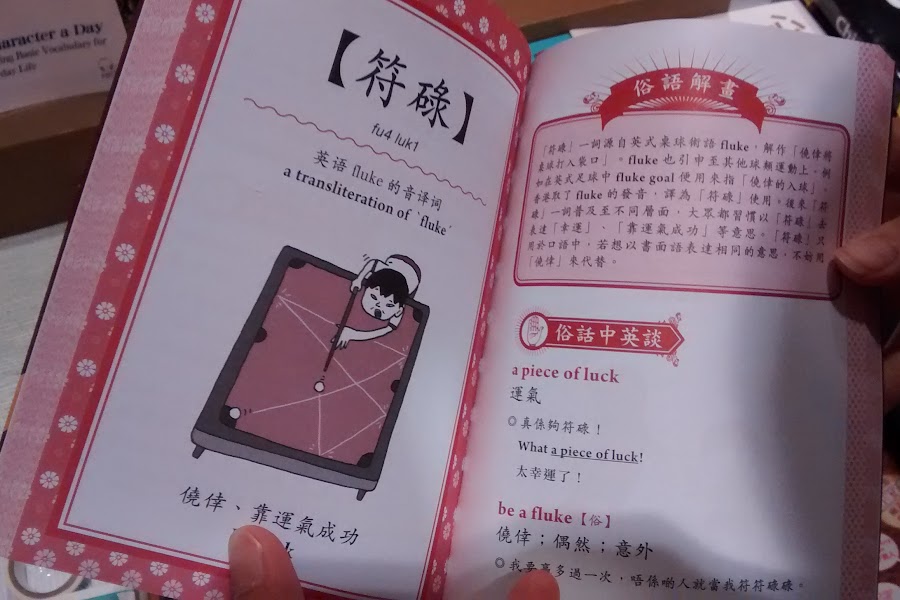 aracter a Day
ing Basic Vocabulary for
day Life
【符碌】
fu4 luk1
英语 fluke 的音译词
a transliteration of "fluke"
僥倖、靠運氣成功
俗語解畫
「符碌」一詞源自英式桌球術語 fluke，解作「僥倖將
桌球打入袋口」。fluke 也引申至其他球類運動上，例
如在英式足球中 fluke goal 便用來指「僥倖的入球」。
香港取了 fluke 的發音，譯為「符碌」使用。後來「符
碌」一詞普及至不同層面，大眾都習慣以「符碌」去
表達「幸運」、「靠運氣成功」等意思。「符碌」只
用於口語中，若想以書面語表達相同的意思，不妨用
「僥倖」來代替。
俗話中英談
a piece of luck
運氣
◎真係夠符碌！
What a piece of luck!
太幸運了！
be a fluke【俗】
僥倖；偶然；意外
◎我要贏多過一次，唔係啲人就當我符符碌碌。